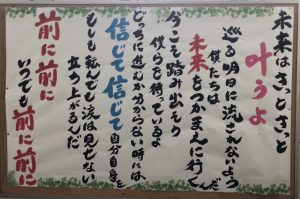 未来はきっときっと
叶うよ
巡る明日に流されないよう
僕たちは
未来をつかまえに行くんだ
今こそ踏み出そう
僕らを待っているよ
どっちに進むか分からない時には
信じて信じて自分自身を
もしも転んでも涙は見せない
立ち上がるんだ
前に前に
いつでも前に前に